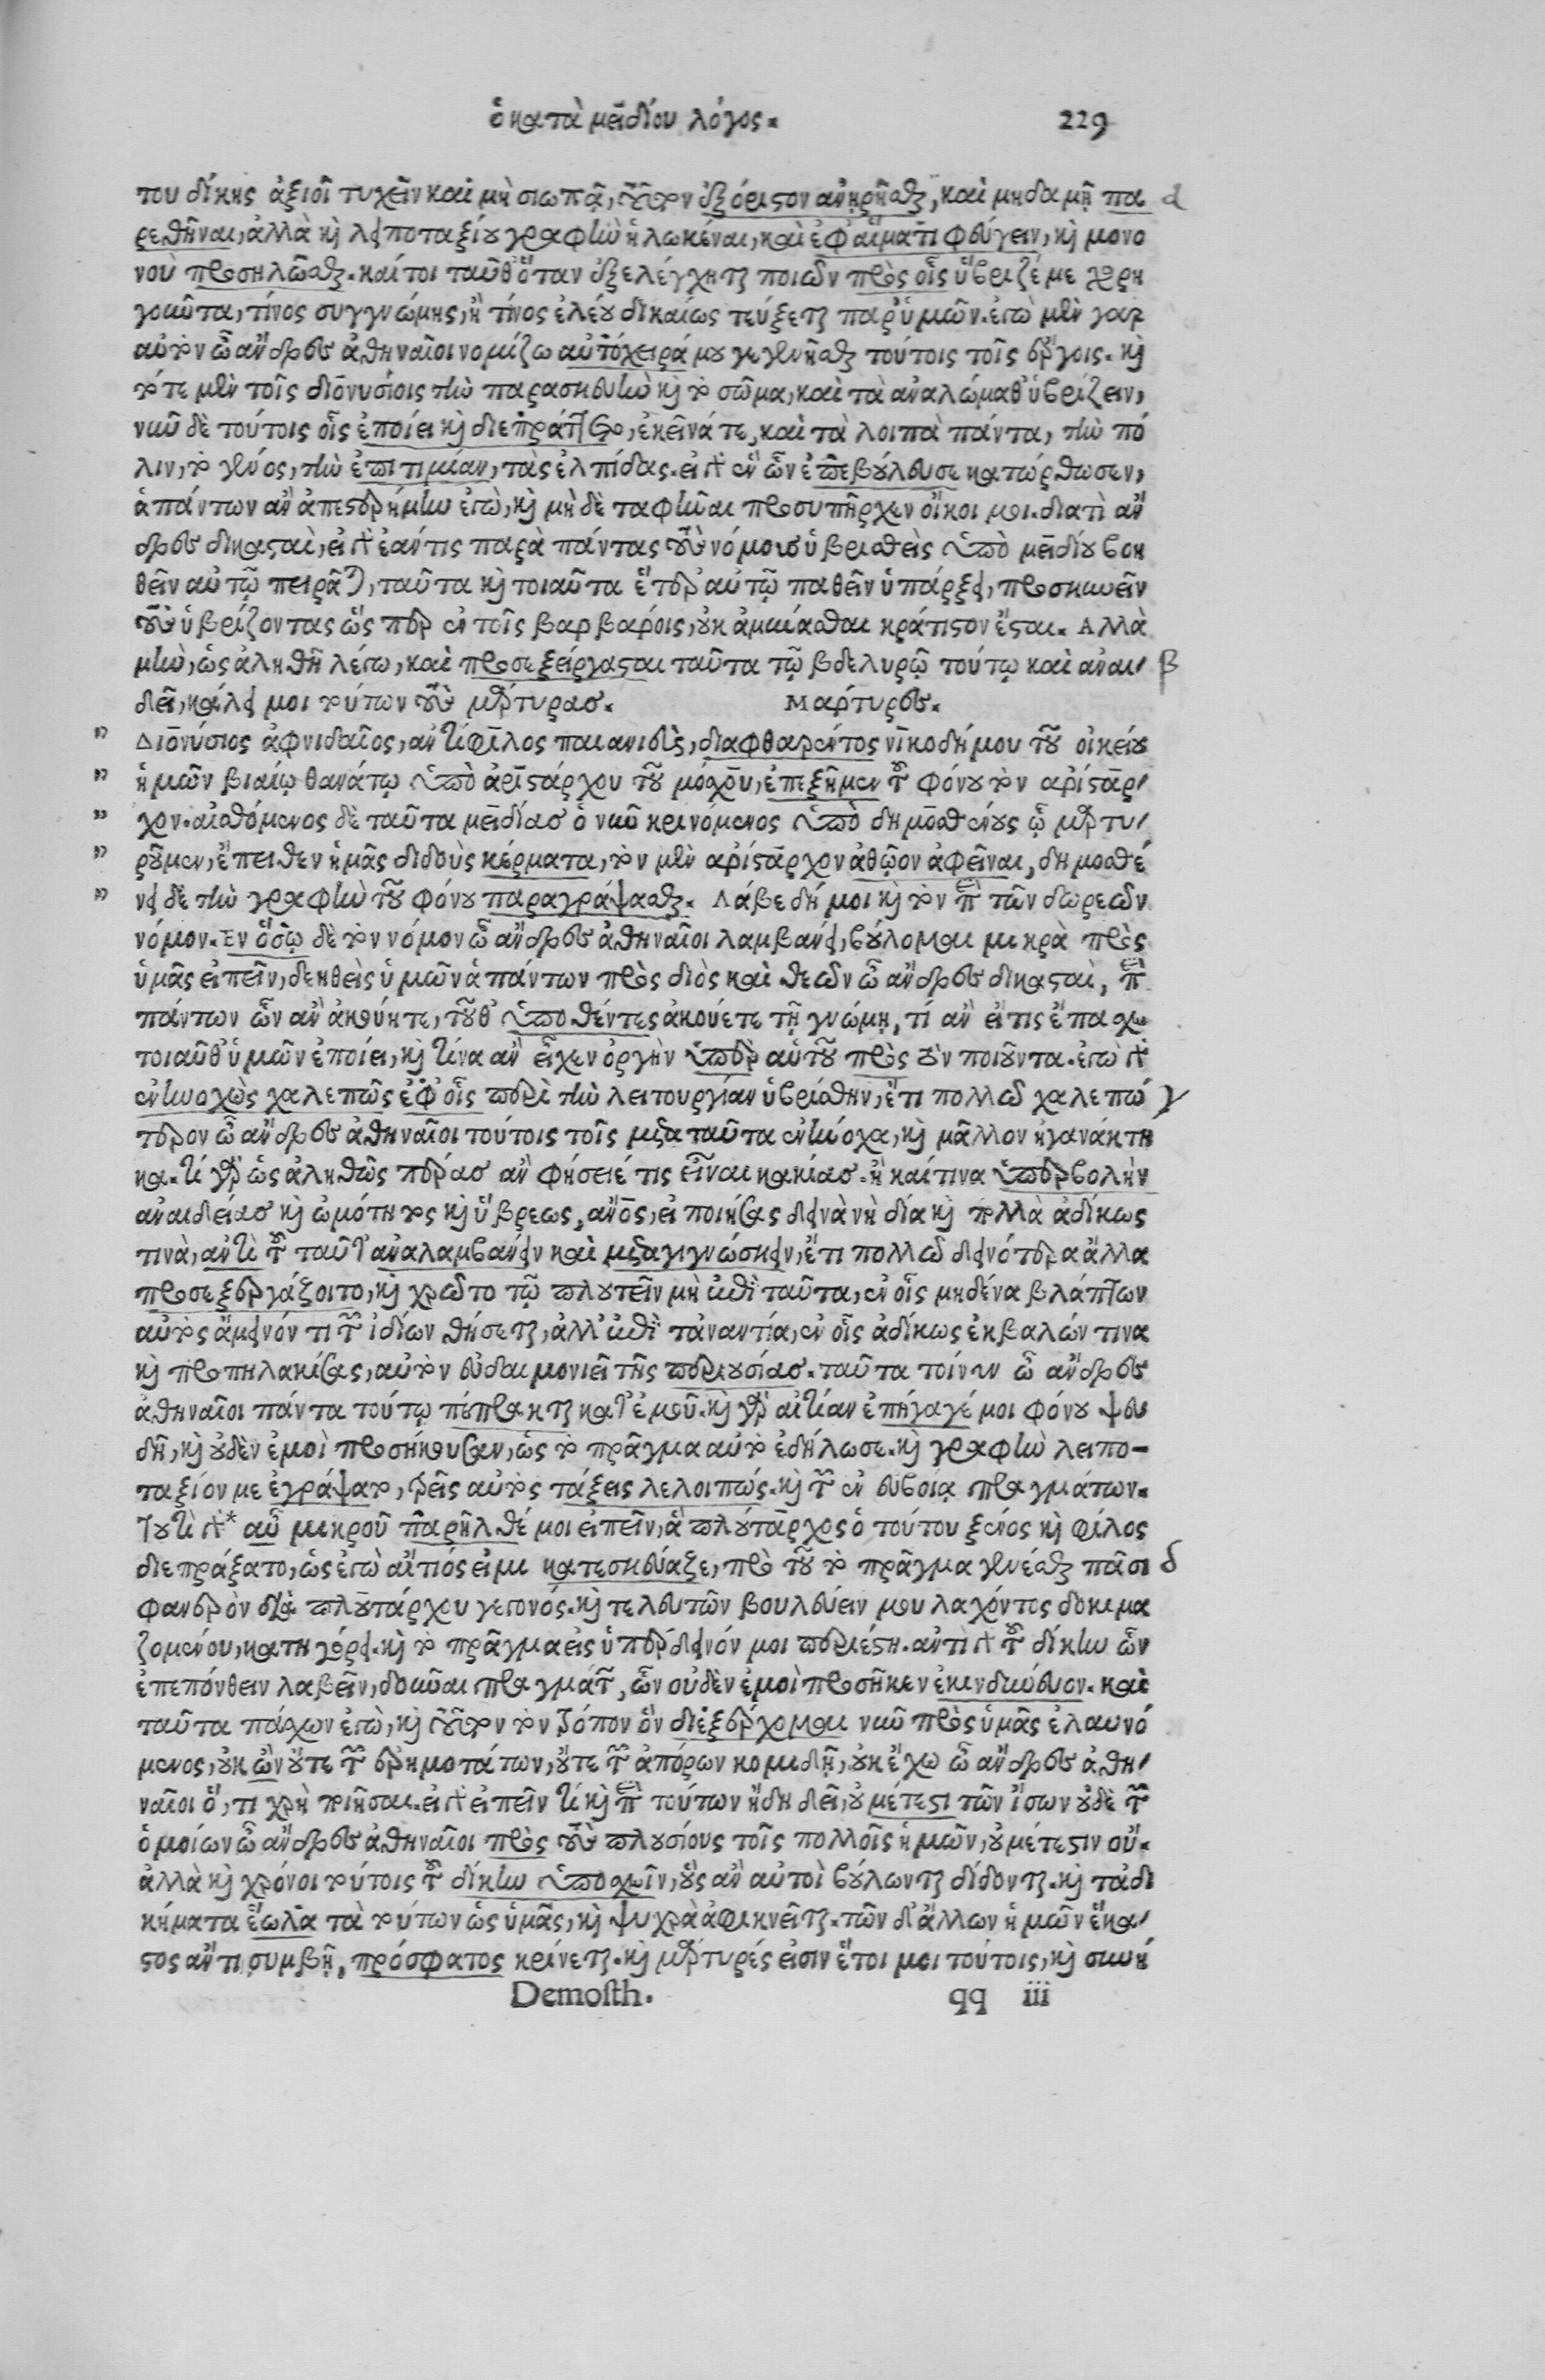 ὁ κατὰ μειδίου λόγος. 229
του δίκης ἀξιοῖ τυχεῖν καὶ μὴ σιωπᾷ, τοῦτον ἐξόριστον ἀνῃρῆσθαι, καὶ μηδαμῇ πα α
ρεθῆναι, ἀλλὰ καὶ λειποταξίου γραφὴν ἡλωκέναι, καὶ ἐφ' αἵματι φεύγειν, καὶ μονο
νοὺ προσηλῶσθαι. καίτοι ταῦθ' ὅταν ἐξελέγχηται ποιῶν πρὸς οἷς ὕβριζέ με χορη
γοῦντα, τίνος συγγνώμης, ἢ τίνος ἐλέου δικαίως τεύξεται παρ' ὑμῶν. ἐγὼ μὲν γὰρ
αὐτὸν ὦ ἄνδρες ἀθηναῖοι νομίζω αὐτόχειρά μου γεγενῆσθαι τούτοις τοῖς ἔργοις. καὶ
τότε μὲν τοῖς διονυσίοις τὴν παρασκευὴν καὶ τὸ σῶμα, καὶ τὰ ἀναλώμαθ' ὑβρίζειν,
νῦν δὲ τούτοις οἷς ἐποίει καὶ διεπράττετο, ἐκεῖνά τε, καὶ τὰ λοιπὰ πάντα, τὴν πό
λιν, τὸ γένος, τὴν ἐπιτιμίαν, τὰς ἐλπίδας. εἰ γὰρ ἓν ὧν ἐπεβούλευσε κατώρθωσεν,
ἁπάντων ἂν ἀπεστερήμην ἐγὼ, καὶ μὴ δὲ ταφῆναι προσυπῆρχεν οἴκοι μοι. διατὶ ἄν
δρες δικασταὶ, εἰ γὰρ ἐάν τις παρὰ πάντας τοὺς νόμους ὑβρισθεὶς ὑπὸ μειδίου βοη
θεῖν αὑτῷ πειρᾶται, ταῦτα καὶ τοιαῦτα ἕτερ' αὐτῷ παθεῖν ὑπάρξει, προσκυνεῖν
τοὺς ὑβρίζοντας ὥσπερ ἐν τοῖς βαρβάροις, οὐκ ἀμύνασθαι κράτιστον ἔσται. Ἀλλὰ
μὴν, ὡς ἀληθῆ λέγω, καὶ προσεξείργασται ταῦτα τῷ βδελυρῷ τούτῳ καὶ ἀναι- β
δεῖ, κάλει μοι τούτων τοὺς μάρτυρας. Μάρτυρες.
" Διονύσιος ἀφνιδαῖος, ἀντίφιλος παιανιεὺς, διαφθαρέντος νικοδήμου τοῦ οἰκείου
" ἡμῶν βιαίῳ θανάτῳ ὑπὸ ἀριστάρχου τοῦ μόσχου, ἐπεξῇμεν τοῦ φόνου τὸν ἀρίσταρ-
" χον. αἰσθόμενος δὲ ταῦτα μειδίας ὁ νῦν κρινόμενος ὑπὸ δημοσθένους ᾧ μαρτυ-
" ροῦμεν, ἔπειθεν ἡμᾶς διδοὺς κέρματα, τὸν μὲν ἀρίσταρχον ἀθῷον ἀφεῖναι, δημοσθέ
" νει δὲ τὴν γραφὴν τοῦ φόνου παραγράψασθαι. Λάβε δή μοι καὶ τὸν περὶ τῶν δωρεῶν
νόμον. Ἐν ὅσῳ δὲ τὸν νόμον ὦ ἄνδρες ἀθηναῖοι λαμβάνει, βούλομαι μικρὰ πρὸς
ὑμᾶς εἰπεῖν, δεηθεὶς ὑμῶν ἁπάντων πρὸς διὸς καὶ θεῶν ὦ ἄνδρες δικασταὶ, περὶ
πάντων ὧν ἂν ἀκούητε, τοῦθ' ὑποθέντες ἀκούετε τῇ γνώμῃ, τί ἂν εἴ τις ἔπασχε
τοιαῦθ' ὑμῶν ἐποίει, καὶ τίνα ἂν εἶχεν ὀργὴν ὑπὲρ αὑτοῦ πρὸς τὸν ποιοῦντα. ἐγὼ γὰρ
ἐνηνοχὼς χαλεπῶς ἐφ' οἷς περὶ τὴν λειτουργίαν ὑβρίσθην, ἔτι πολλῷ χαλεπώ γ
τερον ὦ ἄνδρες ἀθηναῖοι τούτοις τοῖς μετὰ ταῦτα ἐνήνοχα, καὶ μᾶλλον ἠγανάκτη
κα. τί γὰρ ὡς ἀληθῶς πέρας ἂν φήσειέ τις εἶναι κακίας. ἢ καὶ τίνα ὑπερβολὴν
ἀναιδείας καὶ ὠμότητος καὶ ὕβρεως, ἄνος, εἰ ποιήσας δεινὰ νὴ δία καὶ πολλὰ ἀδίκως
τινὰ, ἀντὶ τοῦ ταῦτ' ἀναλαμβάνειν καὶ μεταγιγνώσκειν, ἔτι πολλῷ δεινότερα ἄλλα
προσεξεργάζοιτο, καὶ χρῷτο τῷ πλουτεῖν μὴ ἐπὶ ταῦτα, ἐν οἷς μηδένα βλάπτων
αὐτὸς ἄμεινόν τι τῶν ἰδίων θήσεται, ἀλλ' ἐπὶ τἀναντία, ἐν οἷς ἀδίκως ἐκβαλών τινα
καὶ προπηλακίσας, αὑτὸν εὐδαιμονιεῖ τῆς περιουσίας. ταῦτα τοίνυν ὦ ἄνδρες
ἀθηναῖοι πάντα τούτῳ πέπρακται κατ' ἐμοῦ. καὶ γὰρ αἰτίαν ἐπήγαγέ μοι φόνου ψευ
δῆ, καὶ οὐδὲν ἐμοὶ προσήκουσαν, ὡς τὸ πρᾶγμα αὐτὸ ἐδήλωσε. καὶ γραφὴν λειπο-
ταξίου με ἐγράψατο, τρεῖς αὐτὸς τάξεις λελοιπώς. καὶ τῶν ἐν εὐβοίᾳ πραγμάτων.
Τουτὶ γὰρ* αὖ μικροῦ παρῆλθέ μοι εἰπεῖν, ἃ πλούταρχος ὁ τούτου ξένος καὶ φίλος
διεπράξατο, ὡς ἐγὼ αἴτιός εἰμι κατεσκεύαζε, πρὸ τοῦ τὸ πρᾶγμα γενέσθαι πᾶσι δ
φανερὸν διὰ πλουτάρχου γεγονός. καὶ τελευτῶν βουλεύειν μου λαχόντος δοκιμα
ζομένου, κατηγόρει. καὶ τὸ πρᾶγμα εἰς ὑπέρδεινόν μοι περιέστη. ἀντὶ γὰρ τοῦ δίκην ὧν
ἐπεπόνθειν λαβεῖν, δοῦναι πραγμάτων, ὧν οὐδὲν ἐμοὶ προσῆκεν ἐκινδύνευον. καὶ
ταῦτα πάσχων ἐγὼ, καὶ τοῦτον τὸν τρόπον ὃν διεξέρχομαι νῦν πρὸς ὑμᾶς ἐλαυνό
μενος, οὐκ ὢν οὔτε τῶν ἐρημοτάτων, οὔτε τῶν ἀπόρων κομιδῇ, οὐκ ἔχω ὦ ἄνδρες ἀθη-
ναῖοι ὅ, τι χρὴ ποιῆσαι. εἰ γὰρ εἰπεῖν τί καὶ περὶ τούτων ἤδη δεῖ, οὐ μέτεστι τῶν ἴσων οὐδὲ τῶν
ὁμοίων ὦ ἄνδρες ἀθηναῖοι πρὸς τοὺς πλουσίους τοῖς πολλοῖς ἡμῶν, οὐ μέτεστιν οὔ.
ἀλλὰ καὶ χρόνοι τούτοις τοῦ δίκην ὑποσχεῖν, οὓς ἂν αὐτοὶ βούλωνται δίδονται. καὶ τἀδι
κήματα ἕωλα τὰ τούτων ὡς ὑμᾶς, καὶ ψυχρὰ ἀφικνεῖται. τῶν δ' ἄλλων ἡμῶν ἕκα-
στος ἄν τι συμβῇ, πρόσφατος κρίνεται. καὶ μάρτυρές εἰσιν ἕτοιμοι τούτοις, καὶ συνή
Demosth. qq iii